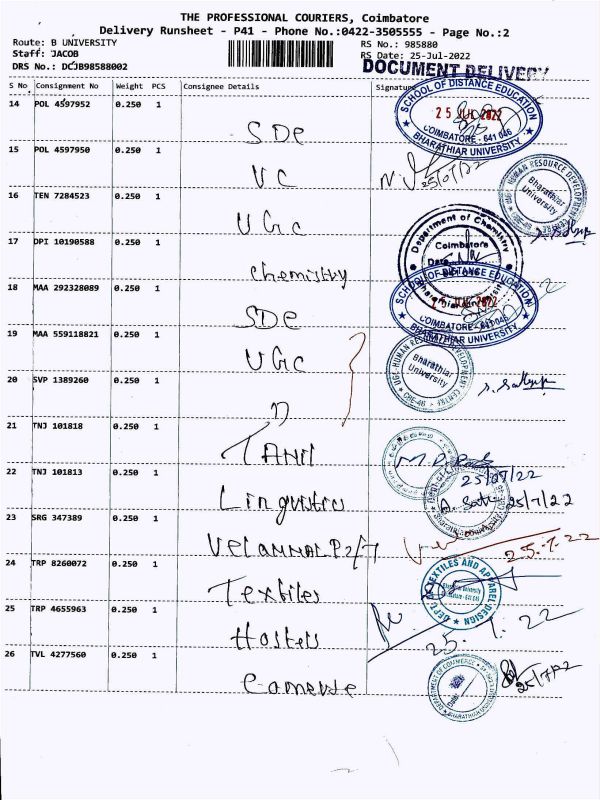 THE PROFESSIONAL COURIERS, Coimbatore
Delivery Runsheet - P41 - Phone No.:0422-3505555 - Page No.:2
Route: B UNIVERSITY
RS No.: 985880
Staff: JACOB
RS Date: 25-Jul-2022
DRS No.: DCJB98588002
DOCUMENT DELIVERY
S No Consignment No Weight PCS Consignee Details Signature
SCHOOL OF DISTANCE EDUCATION
25 JUL 2022
COIMBATORE - 641 046
BHARATHIAR UNIVERSITY
14 POL 4597952 0.250 1
SDE
15 POL 4597950 0.250 1
VC
25/07/22
HUMAN RESOURCE DEVELOPMENT
Bharathiar
University
16 TEN 7284523 0.250 1
UGC
Department of Chemistry
Coimbatore
Date
17 DPI 10190588 0.250 1
Chemistry
SCHOOL OF DISTANCE EDUCATION
JUL 2022
COIMBATORE - 641 046
BHARATHIAR UNIVERSITY
18 MAA 292328089 0.250 1
SDE
19 MAA 559118821 0.250 1
UGC
Bharathiar
University
20 SVP 1389260 0.250 1
21 TNJ 101818 0.250 1
TAMIL
25/07/22
22 TNJ 101813 0.250 1
Linguistics
25/7/22
23 SRG 347389 0.250 1
25.7.22
24 TRP 8260072 0.250 1
Textiles
TEXTILES AND APPAREL DESIGN
25 TRP 4655963 0.250 1
Hostels
25.7.22
26 TVL 4277560 0.250 1
DEPARTMENT OF COMMERCE
25/7/22